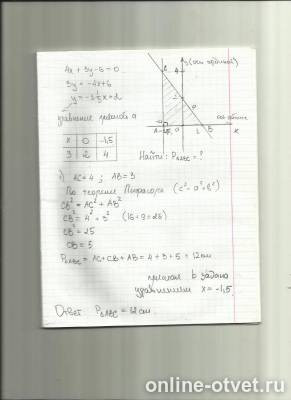 4x + 3y - 6 = 0
3y = -4x+6
y = -1⅓x+2
уравнение прямой a
x 0 -1,5
y 2 4
y (ось ординат)
4
2
a
0
A -1,5
1,5 B
ось абсцисс
x
Найти: P△ABC = ?
AC = 4 ; AB = 3
По теореме Пифагора (c² = a²+b²)
CB² = AC² + AB²
CB² = 4² + 3² (16+9=25)
CB² = 25
CB = 5
P△ABC = AC+CB+AB = 4+3+5 = 12см
прямая b задана
уравнением x = -1,5.
Ответ: P△ABC = 12см.
online-otvet.ru